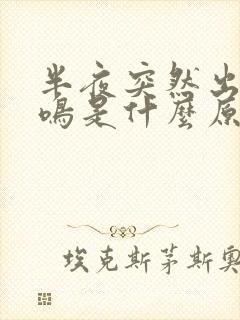 半夜突然出
鳴是什麼原
埃克斯茅斯奧